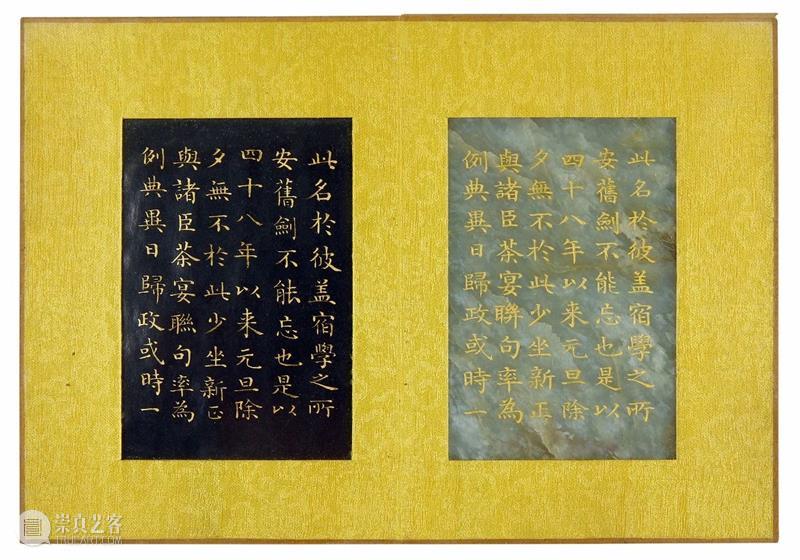 此名於彼盖宿學之所
安舊劍不能忘也是以
四十八年以来元旦除
夕無不於此少坐新正
與諸臣茶宴聮句率為
例典異日歸政或時一
此名於彼盖宿學之所
安舊劍不能忘也是以
四十八年以来元旦除
夕無不於此少坐新正
與諸臣茶宴聫句率為
例典異日歸政或時一
崇真艺客
TRUEART.COM